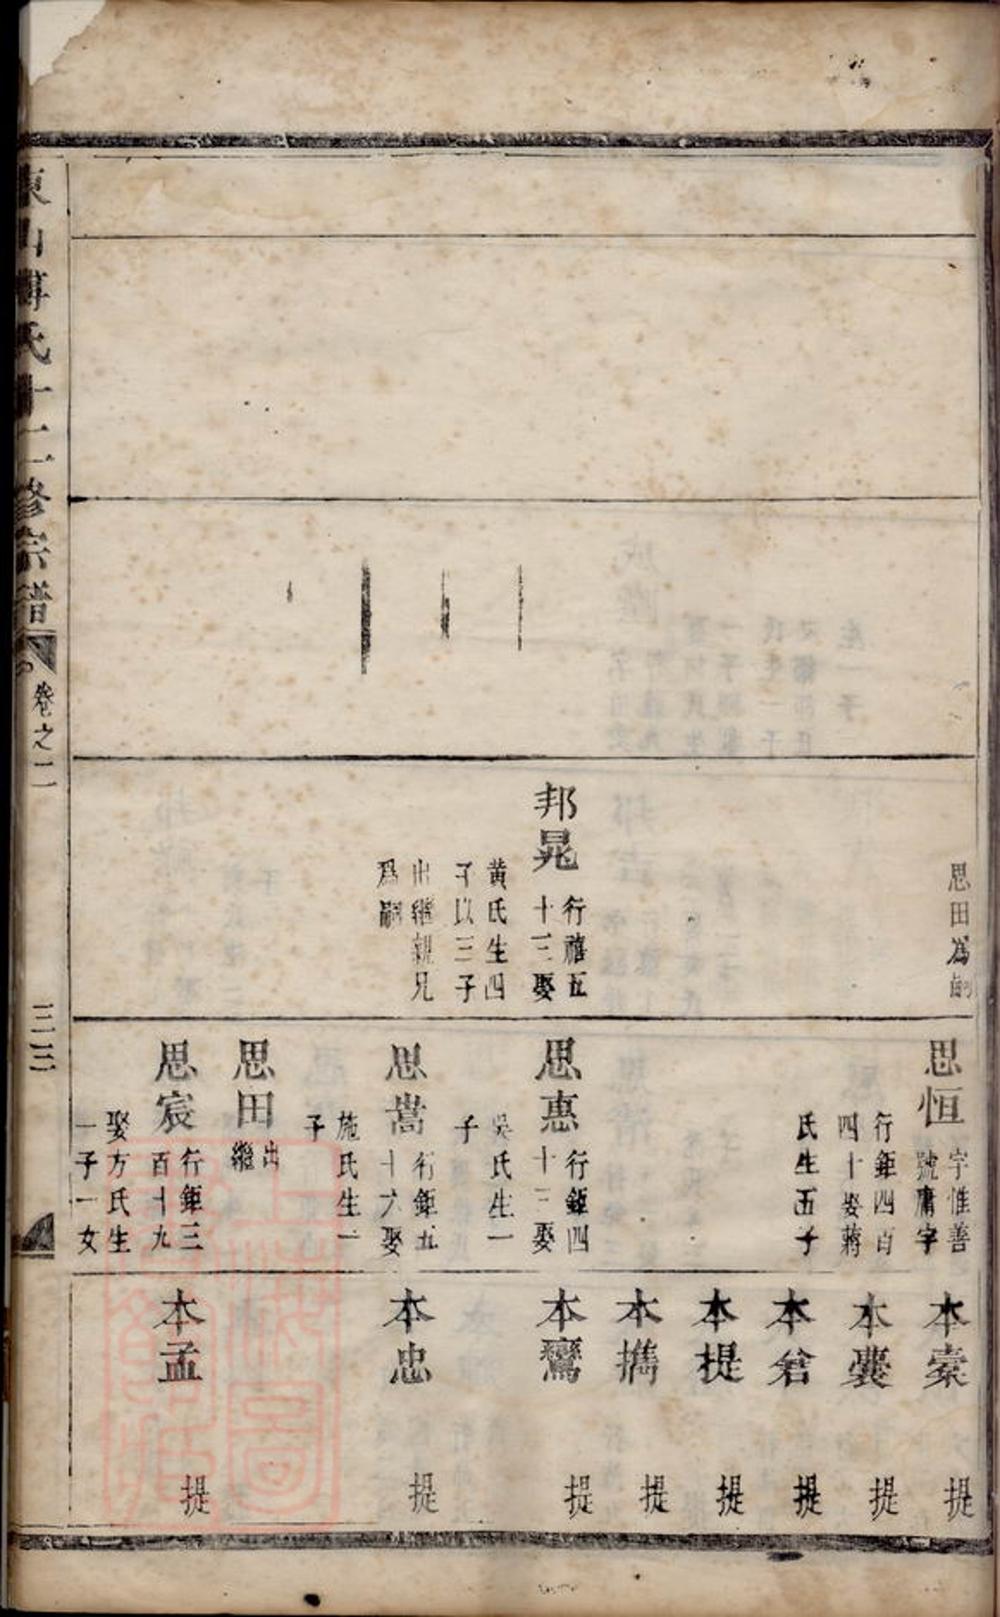 思田為嗣
邦晃
行禧五
十三娶
黄氏生四
子以三子
出繼親兄
爲嗣
思恒
字惟善
號庸字
行鉅四百
四十娶蔣
氏生五子
思惠
行鉅四
十三娶
吳氏生一
子
思嵩
行鉅五
十六娶
施氏生一
子
思田
出
繼
思宸
行鉅三
百十九
娶方氏生
一子一女
本橐 提
本囊 提
本倉 提
本提 提
本攜 提
本鸞 提
本忠 提
本孟 提
東山傅氏十二修宗譜
卷之二
三三